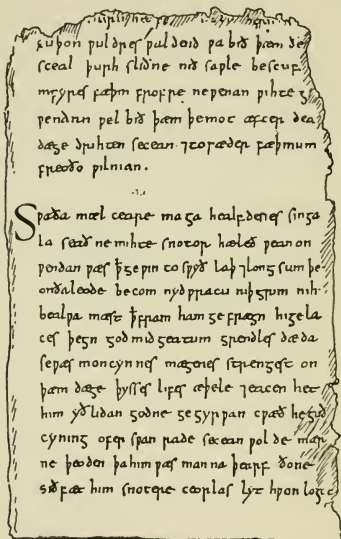 cuþon ƿuldres ƿaldend ƿa bið þæm ðe
sceal þurh sliðne nið saƿle bescuf
in fyres fæþm frofre neƿenan ƿihte ge
ƿendan ƿel bið þæm þe mot æfter dea
dæge drihten secean ⁊ to fæder fæþmum
freoðo ƿilnian.
Sƿaða mæl ceare maga healfdenes singa
la seað ne mihte snotor hæleð ƿean on
ƿendan ƿæs ꝥ geƿin to sƿyð laþ ⁊ longsum þe
onða leode becom nydƿracu niþgrim nih
bealƿa mæst ꝥ fram ham gefrægn higela
ces þegn god mid geatum grendles dæda
se ƿæs moncynnes mægenes strengest on
þæm dæge þysses lifes æþele ⁊ eacen het
him yðlidan godne gegyrƿan cƿæð he guð
cyning ofer sƿan rade secean ƿolde mær
ne þeoden þa him ƿæs manna þearf ðone
siðfæt him snotere ceorlas lyt hƿon